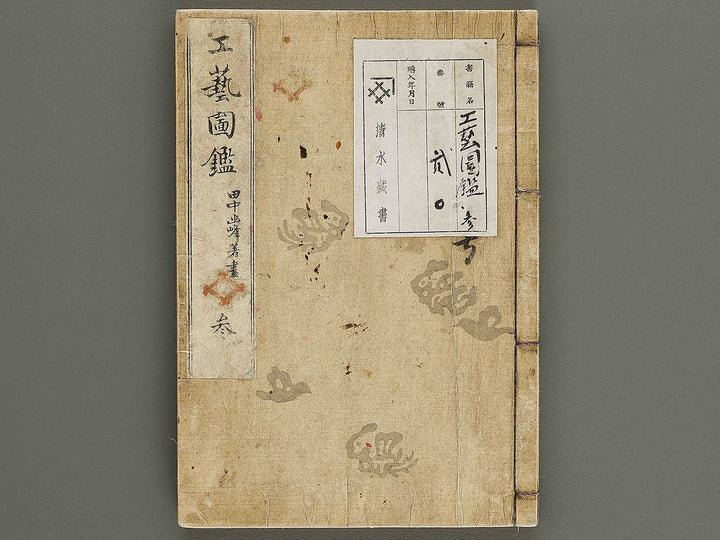 工藝圖鑑
田中幽峰著畫
参
書籍名
工藝圖鑑参
番號
貳〇
購入年月日
清水藏書